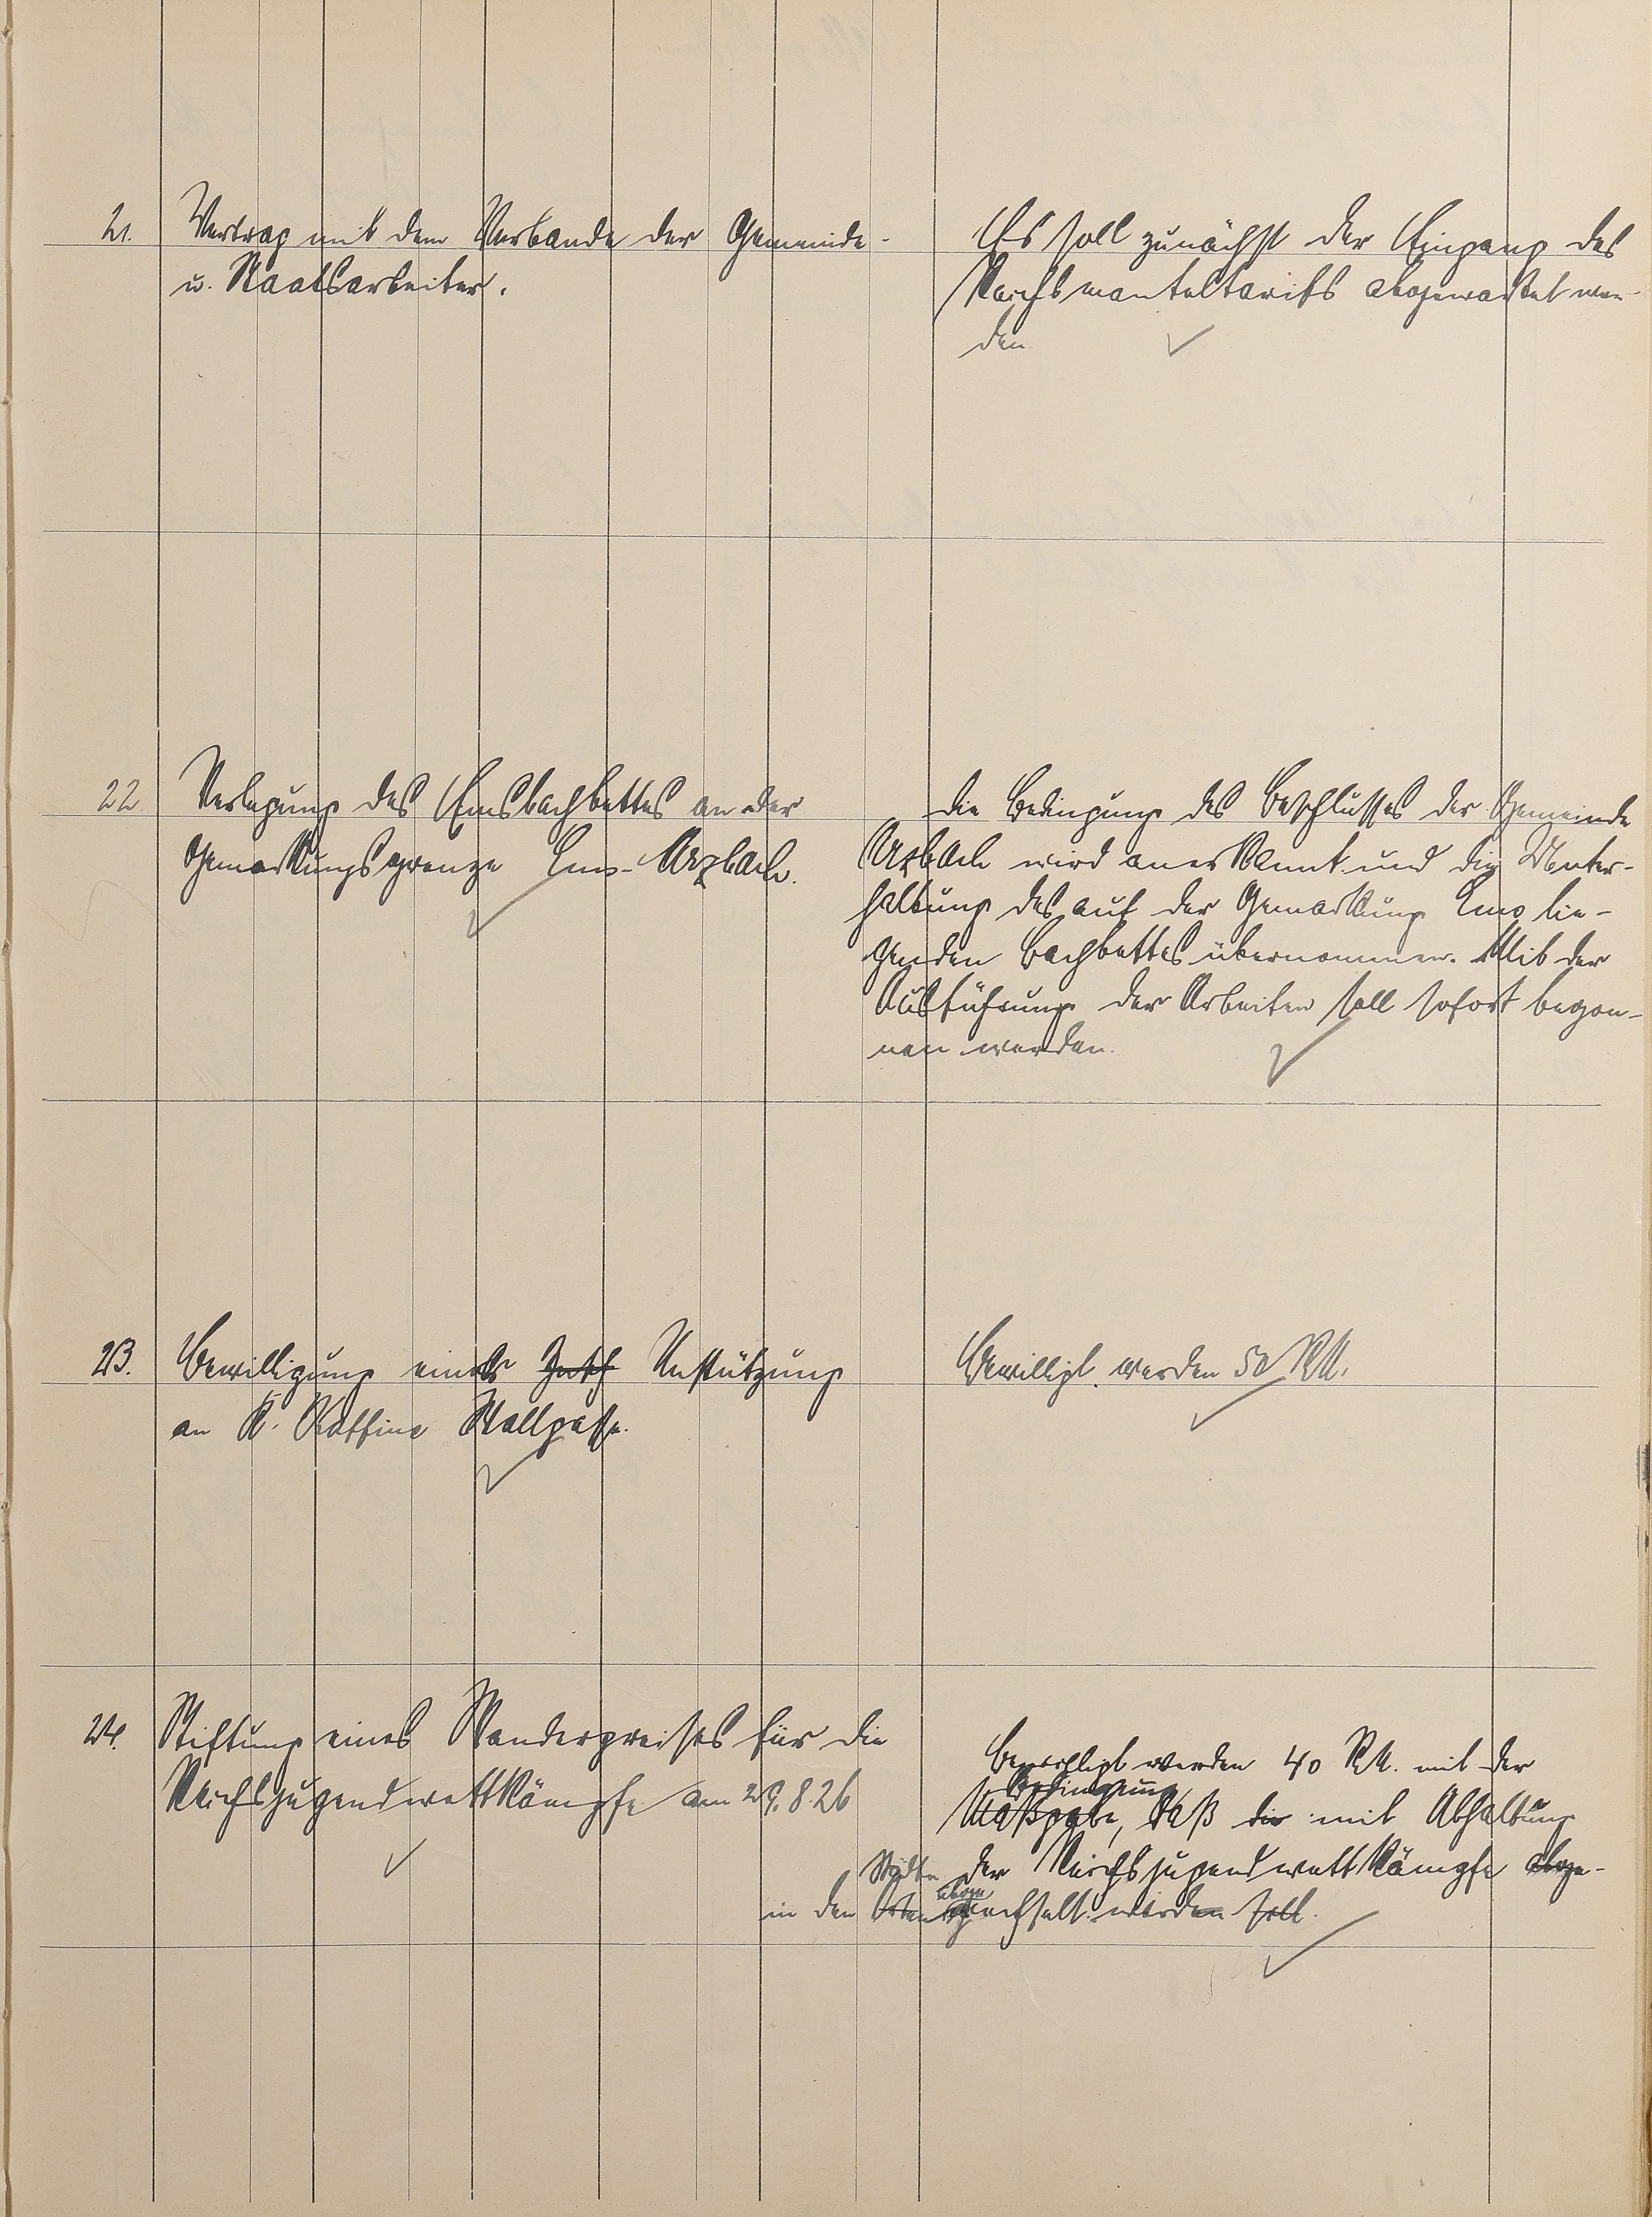 21.
Vertrag mit dem Verbande der Gemeinde-
u. Staatsarbeiter.
Es soll zunächst der Eingang des
Reichsmanteltarifs abgewartet wer-
den
22
Verlegung des Emsbachbettes an der
Gemarkungsgrenze Ems-Arzbach.
Die Bedingung des Beschlusses der Gemeinde
Arzbach wird anerkannt und die Unter-
haltung des auf der Gemarkung Ems lie-
genden Bachbettes übernommen. Mit der
Ausführung der Arbeiten soll sofort begon-
nen werden.
23.
Bewilligung einer Unstützung
an K.
Bewilligt werden 50 RM.
24.
Stiftung eines Wanderpreises für die
Reichsjugendwettkämpfe am 29.8.26
Bewilligt werden 40 RM. mit der
Bedingung
Maßgabe, daß die mit Abhaltung
der Reichsjugendwettkämpfe abge-
Städten
in den Orten abge wechselt werden soll.